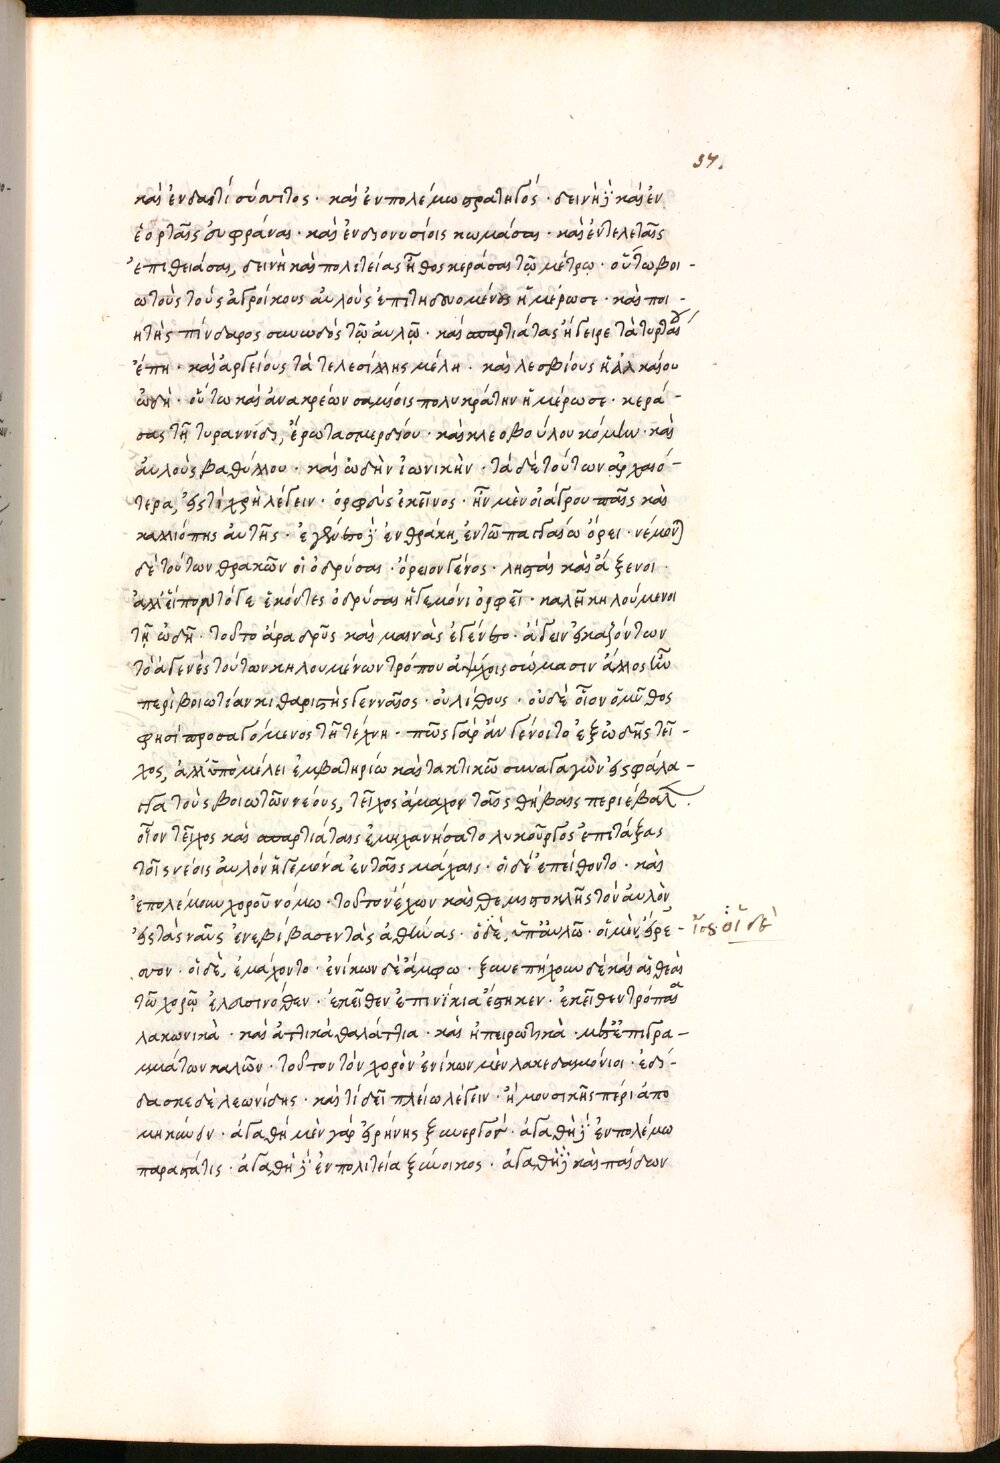 37.
καὶ ἐν δαιτὶ σύσσιτος · καὶ ἐν πολέμω στρατηγός · δεινὴ δὲ καὶ ἐν
ἑορταῖς εὐφράναι · καὶ ἐν διονυσίοις κωμάσαι · καὶ ἐν τελεταῖς
ἐπιθειάσαι, δεινὴ καὶ πολιτείας ἦθος κεράσαι τῶ μέτρω · οὕτω βοι-
ωτοὺς τοὺς ἀγροίκους αὐλοὺς ἐπιτηδευομένους ἡμέρωσε · καὶ ποι-
ητὴς πίνδαρος συνωδὸς τῶ αὐλῶ · καὶ σπαρτιάτας ἤγειρε τὰ τυρταίου
ἔπη · καὶ ἀργείους τὰ τελεσίλλης μέλη · καὶ λεσβίους ἡ ἀλκαίου
ὠδὴ · οὕτω καὶ ἀνακρέων σαμίοις πολυκράτην ἡμέρωσε · κερά-
σας τῆ τυραννίδι, ἔρωτα σμερδίου · καὶ κλεοβούλου κόμην · καὶ
αὐλοὺς βαθύλλου · καὶ ὠδὴν ἰωνικὴν · τὰ δὲ τούτων ἀρχαιό-
τερα, εἴ τι χρὴ λέγειν · ὀρφεὺς ἐκεῖνος · ἦν μὲν οἰάγρου παῖς καὶ
καλλιόπης αὐτῆς · ἐγένετο δὲ ἐν θράκη, ἐν τῶ παγγαίω ὄρει · νέμονται
δὲ τούτων θρακῶν οἱ ὀδρύσαι · ὄρειον γένος · λησταὶ καὶ ἄξενοι ·
ἀλλ' εἵποντό γε ἑκόντες ὀδρύσαι ἡγεμόνι ὀρφεῖ · καλῆ κηλούμενοι
τῆ ὠδῆ · τοῦτο ἄρα δρῦς καὶ μανιὰς ἐγένετο · ἄγειν εἰκαζόντων
τὸ ἀγενὲς τούτων κηλουμένων τρόπου ἀψύχοις σώμασιν ἄλλος ἦν
περὶ βοιωτίαν κιθαριστὴς γενναῖος · οὐ λίθους · οὐδὲ οἷον ὁ μῦθος
φησὶ προσαγόμενος τῆ τέχνη · πῶς γὰρ ἂν γένοιτο ἐξ ὠδῆς τεῖ-
χος, ἀλλ' ὑπὸ μέλει ἐμβατηρίω καὶ τακτικῶ συναγαγὼν εἰς φάλα-
γγα τοὺς βοιωτῶν νέους, τεῖχος ἄμαχον ταῖς θήβαις περιέβαλεν.
οἷον τεῖχος καὶ σπαρτιάταις ἐμηχανήσατο λυκοῦργος ἐπιτάξας
τοῖς νέοις αὐλὸν ἡγεμόνα ἐν ταῖς μάχαις · οἱ δὲ ἐπείθοντο · καὶ
ἐπολέμουν χοροῦ νόμω · τοῦτον ἔχων καὶ θεμιστοκλῆς τὸν αὐλὸν
εἰς τὰς ναῦς ἐνεβίβασεν τὰς ἀθήνας · οἱ δὲ, ὑπ' αὐλῶ · οἱ μὲν, ἤρε-
ἴσ. οἱ δὲ
σσον · οἱ δὲ, ἐμάχοντο · ἐνίκων δὲ ἄμφω · ξυνεπήχουν δὲ καὶ αἱ θεαὶ
τῶ χορῶ ἐλευσινόθεν · ἐκεῖθεν ἐπινίκια ἔστηκεν · ἐκεῖθεν τρόπαια
λακωνικὰ · καὶ ἀττικὰ θαλάττια · καὶ ἠπειρωτικὰ · μετὰ ἐπιγρα-
μμάτων καλῶν · τοῦτον τὸν χορὸν ἐνίκων μὲν λακεδαιμόνιοι · ἐδί-
δασκε δὲ λεωνίδης · καὶ τί δεῖ πλείω λέγειν · ἢ μουσικῆς πέρι ἀπο
μηκύνειν · ἀγαθὴ μὲν γὰρ εἰρήνης ξυνεργὸν · ἀγαθὴ δὲ ἐν πολέμω
παραστάτις · ἀγαθὴ δὲ ἐν πολιτεία ξύνοικος · ἀγαθὴ δὲ καὶ παίδων